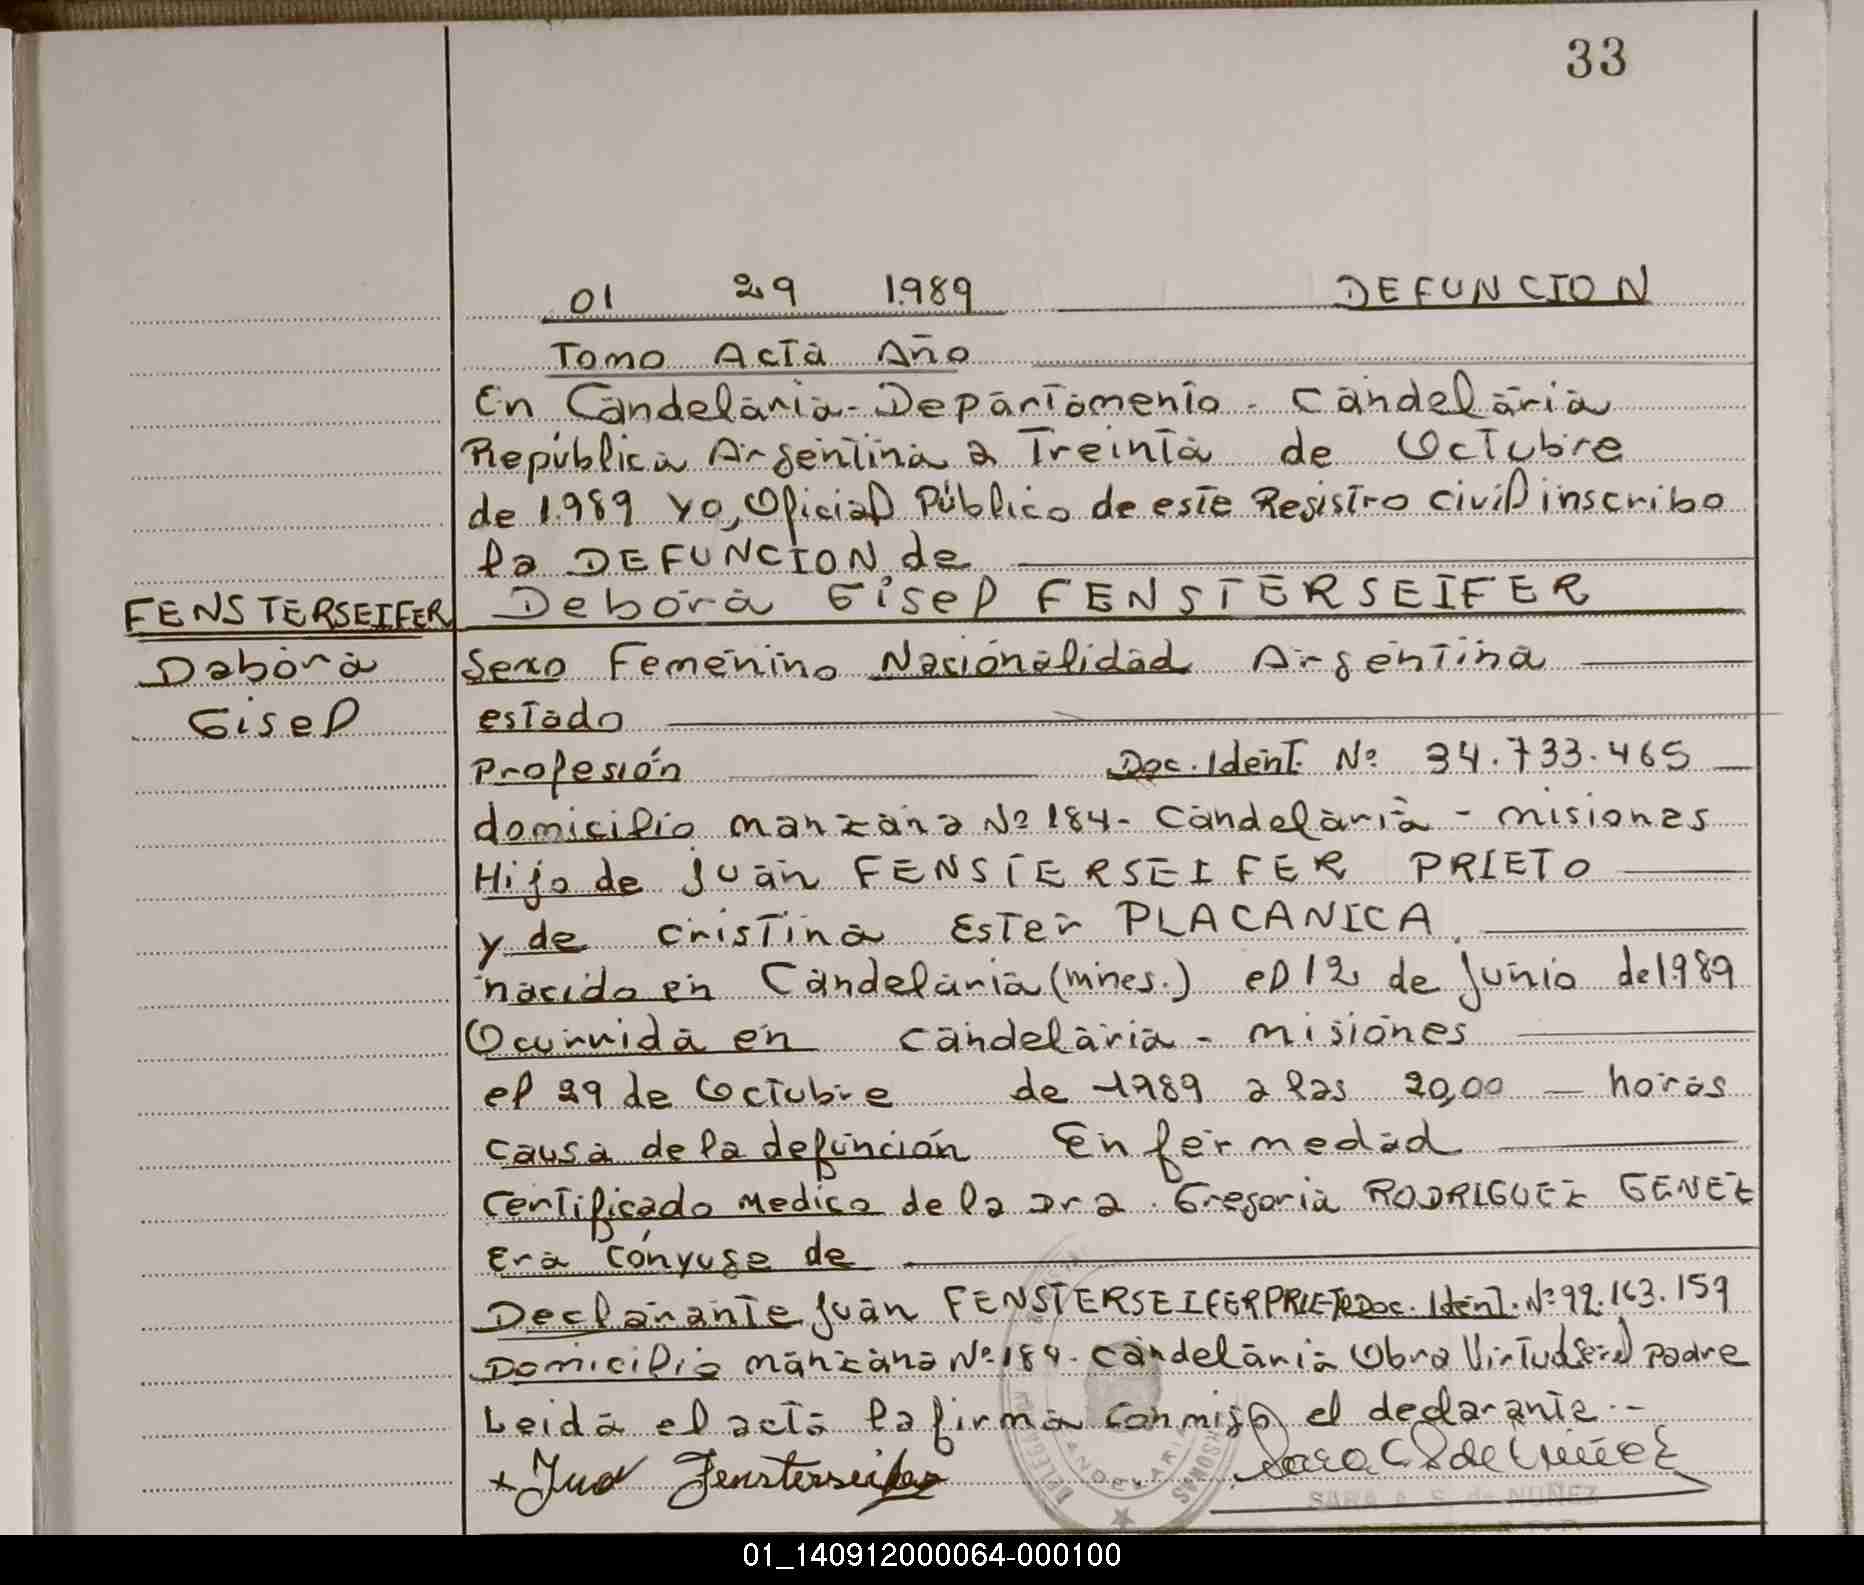 33
01 29 1.989 DEFUNCION
Tomo Acta Año
En Candelaria - Departamento - Candelaria
República Argentina a Treinta de Octubre
de 1.989 Yo, Oficial Público de este Registro civil inscribo
la DEFUNCION de
FENSTERSEIFER Debora Gisel FENSTERSEIFER
Debora Sexo Femenino Nacionalidad Argentina
Gisel estado
Profesión Doc. Ident. Nº 34.733.465
domicilio manzana Nº 184 - Candelaria - misiones
Hijo de Juan FENSTERSEIFER PRIETO
y de Cristina Ester PLACANICA
nacido en Candelaria (mnes.) el 12 de Junio de 1.989
Ocurrida en Candelaria - misiones
el 29 de Octubre de 1989 a las 20,00 horas
causa de la defunción Enfermedad
Certificado Medico de la Dra. Gregoria RODRIGUEZ GENEZ
Era Cónyuge de
Declarante Juan FENSTERSEIFER PRIETO Doc. Ident. Nº 92.163.159
Domicilio manzana Nº 184 - Candelaria Obra Virtud Padre
Leida el acta la firma conmigo el declarante.-
x Juan Fensterseifer
CANDELARIA
SARA A. S. de NUÑEZ
01_140912000064-000100